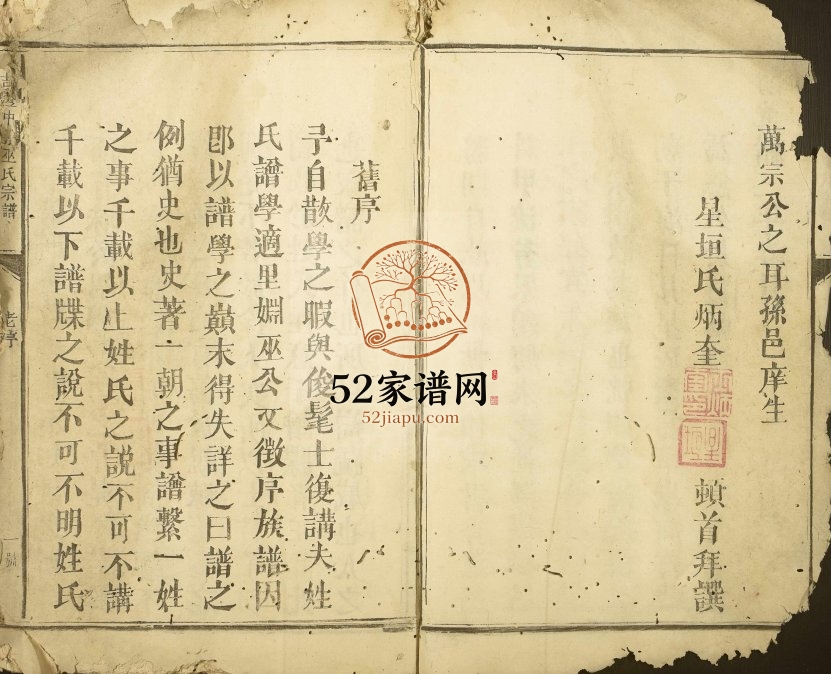 萬宗公之耳孫邑庠生
星垣氏炳奎 頓首拜譔
舊序
予自散學之暇與俊髦士復講夫姓
氏譜學適里姻巫公文徵序族譜因
即以譜學之巔末得失詳之曰譜之
例猶史也史著一朝之事譜繫一姓
之事千載以上姓氏之說不可不講
千載以下譜牒之說不可不明姓氏
巫氏宗譜
老序
一號
52家谱网
52jiapu.com